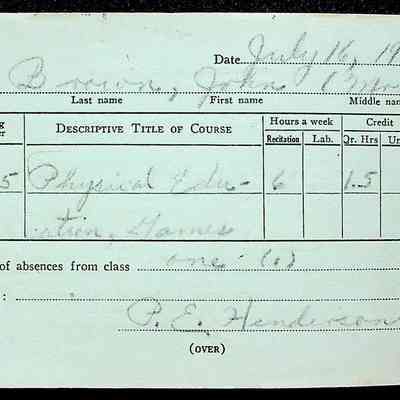 Date July 16, 19
Brown, John (Mr
Last name First name Middle na
g er DESCRIPTIVE TITLE OF COURSE Hours a week Recitation Lab. Credit Qr. Hrs Un
5 Physical Edu- 6 1.5
cation, Games
of absences from class one (1)
:
P. E. Henderson
(OVER)